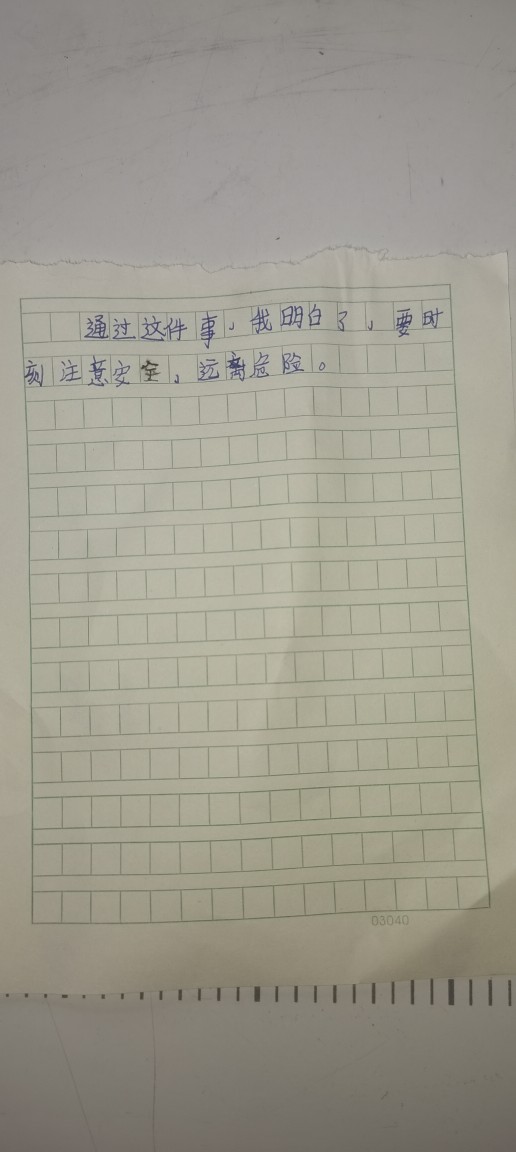 通过这件事，我明白了，要时
刻注意安全，远离危险。
03040